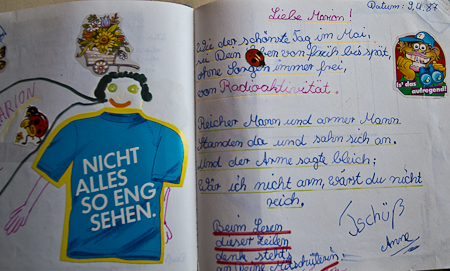 MARION
NICHT
ALLES
SO ENG
SEHEN.
Datum: 9.4.87
Liebe Marion!
Wie der schönste Tag im Mai,
sei Dein Leben von früh bis spät,
ohne Sorgen immer frei,
von Radioaktivität.
Is' das
aufregend!
Reicher Mann und armer Mann
standen da und sahn sich an.
Und der Arme sagte bleich:
Wär ich nicht arm, wärst du nicht
reich.
Tschüß
Anne
Beim Lesen
dieser Zeilen
denk stets
an Deine Mitschülerin: